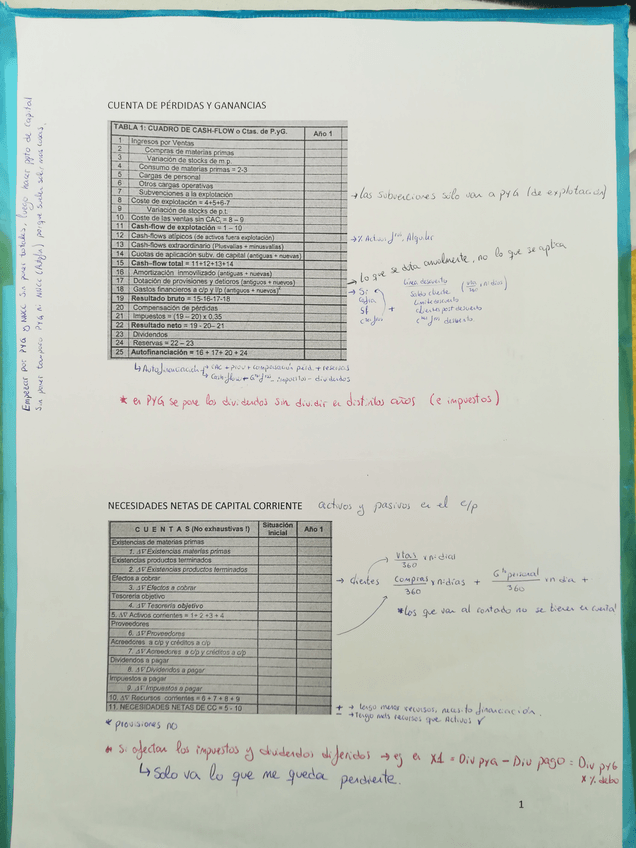 Empezar por PYG y NNCC sin poner totales, luego hacer ppto de capital
sin poner tampoco PYG ni NNCC (Rdo/a) porque salen solo mas cosas.
CUENTA DE PÉRDIDAS Y GANANCIAS
TABLA 1: CUADRO DE CASH-FLOW o Ctas. de P.yG. Año 1
1 Ingresos por Ventas
2 Compras de materias primas
3 Variación de stocks de m.p.
4 Consumo de materias primas = 2-3
5 Cargas de personal
6 Otros cargas operativas
7 Subvenciones a la explotación
8 Coste de explotación = 4+5+6-7
9 Variación de stocks de p.t.
10 Coste de las ventas sin CAC, = 8 – 9
11 Cash-flow de explotación = 1 – 10
12 Cash-flows atípicos (de activos fuera explotación)
13 Cash-flows extraordinario (Plusvalías + minusvalías)
14 Cuotas de aplicación subv. de capital (antiguas + nuevas)
15 Cash–flow total = 11+12+13+14
16 Amortización inmovilizado (antiguos + nuevos)
17 Dotación de provisiones y deterioros (antiguos + nuevos)
18 Gastos financieros a c/p y l/p (antiguos + nuevos)
19 Resultado bruto = 15-16-17-18
20 Compensación de pérdidas
21 Impuestos = (19 – 20) x 0.35
22 Resultado neto = 19 - 20- 21
23 Dividendos
24 Reservas = 22 – 23
25 Autofinanciación = 16 + 17+ 20 + 24
→ las subvenciones sólo van a PYG (de explotación)
→ % Activos fros, Alquiler
→ lo que se dota anualmente, no lo que se aplica
línea descuento
saldo cliente (vtas/360 x n.días)
límite descuento
clientes post descuento
→ Si
+
↳ Autofinanciación = CAC + prov + compensación perd. + reservas
↳ Cash-flow + Gtos fros - impuestos - dividendos
* en PYG se pone los dividendos sin dividir en distintos años (e impuestos)
NECESIDADES NETAS DE CAPITAL CORRIENTE activos y pasivos en el c/p
C U E N T A S (No exhaustivas !) Situación inicial Año 1
Existencias de materias primas
1. ΔV Existencias materias primas
Existencias productos terminados
2. ΔV Existencias productos terminados
Efectos a cobrar
3. ΔV Efectos a cobrar
Tesorería objetivo
4. ΔV Tesorería objetivo
5. ΔV Activos corrientes = 1+ 2 +3 + 4
Proveedores
6. ΔV Proveedores
Acreedores a c/p y créditos a c/p
7. ΔV Acreedores a c/p y créditos a c/p
Dividendos a pagar
8. ΔV Dividendos a pagar
Impuestos a pagar
9. ΔV Impuestos a pagar
10. ΔV Recursos corrientes = 6 + 7 + 8 + 9
11. NECESIDADES NETAS DE CC = 5 - 10
vtas/360 x n.días
→ clientes compras/360 x n.días + Gto personal/360 x n día +
* los que van al contado no se tienen en cuenta
+ → tengo menor recursos, necesito financiación.
- → tengo más recursos que Activos ✓
* provisiones no
* Si afectan los impuestos y dividendos diferidos → ej en X1 = Div PYG – Div pago = Div PYG x % debo
↳ Solo va lo que me queda pendiente.
1